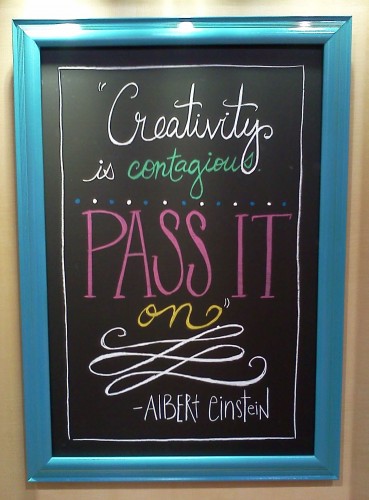 "Creativity
is contagious
PASS IT
on"
-AlBERt einstein